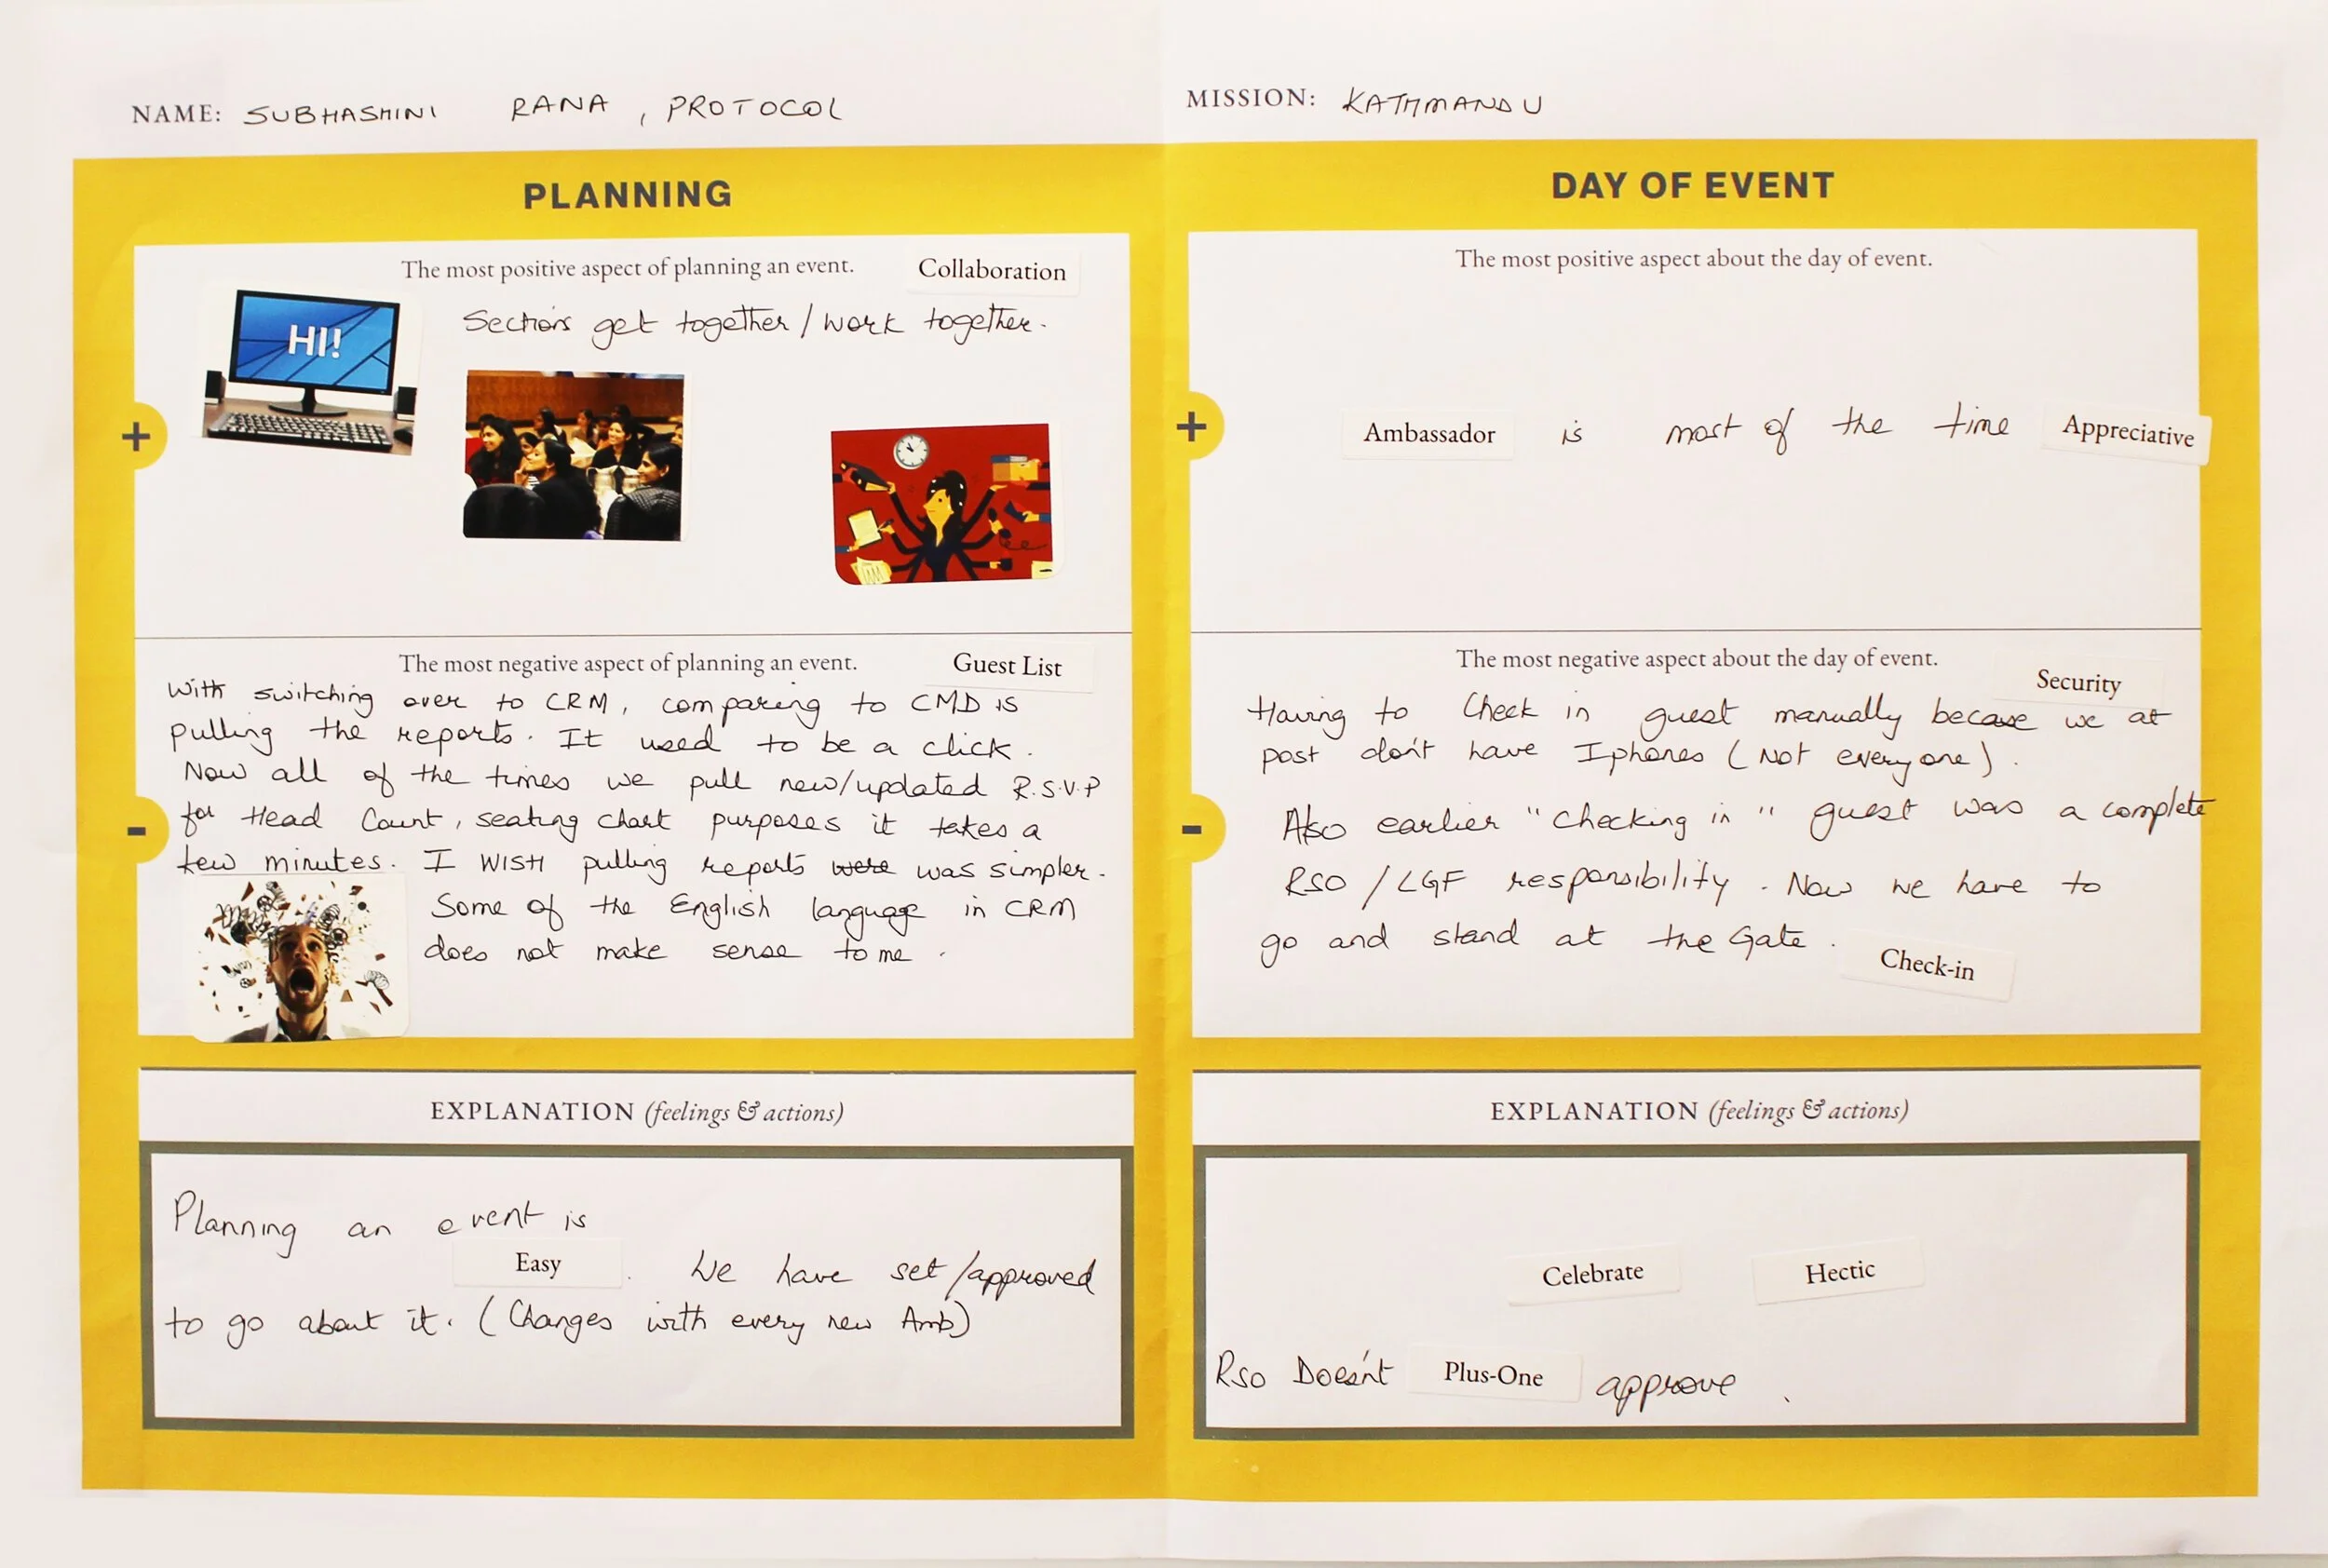 NAME: SUBHASHINI RANA, PROTOCOL
MISSION: KATHMANDU
PLANNING
The most positive aspect of planning an event. Collaboration
Sections get together/work together.
HI!
The most negative aspect of planning an event. Guest List
With switching over to CRM, comparing to CMD is
pulling the reports. It used to be a click.
Now all of the times we pull new/updated R.S.V.P
for Head Count, seating chart purposes it takes a
few minutes. I WISH pulling reports were was simpler.
Some of the English language in CRM
does not make sense to me.
EXPLANATION (feelings & actions)
Planning an event is
Easy. We have set/approved
to go about it. (Changes with every new Amb)
DAY OF EVENT
The most positive aspect about the day of event.
Ambassador is most of the time Appreciative
The most negative aspect about the day of event.
Security
Having to Check in guest manually because we at
post don't have Iphones (Not everyone).
Also earlier "checking in" guest was a complete
RSO/LGF responsibility. Now we have to
go and stand at the Gate.
Check-in
EXPLANATION (feelings & actions)
Celebrate Hectic
RSO Doesn't Plus-One approve.